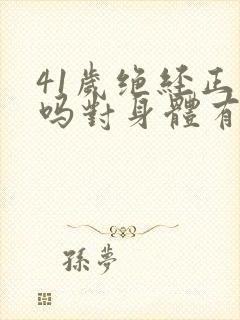 41歲绝経正
吗對身體有
孫夢